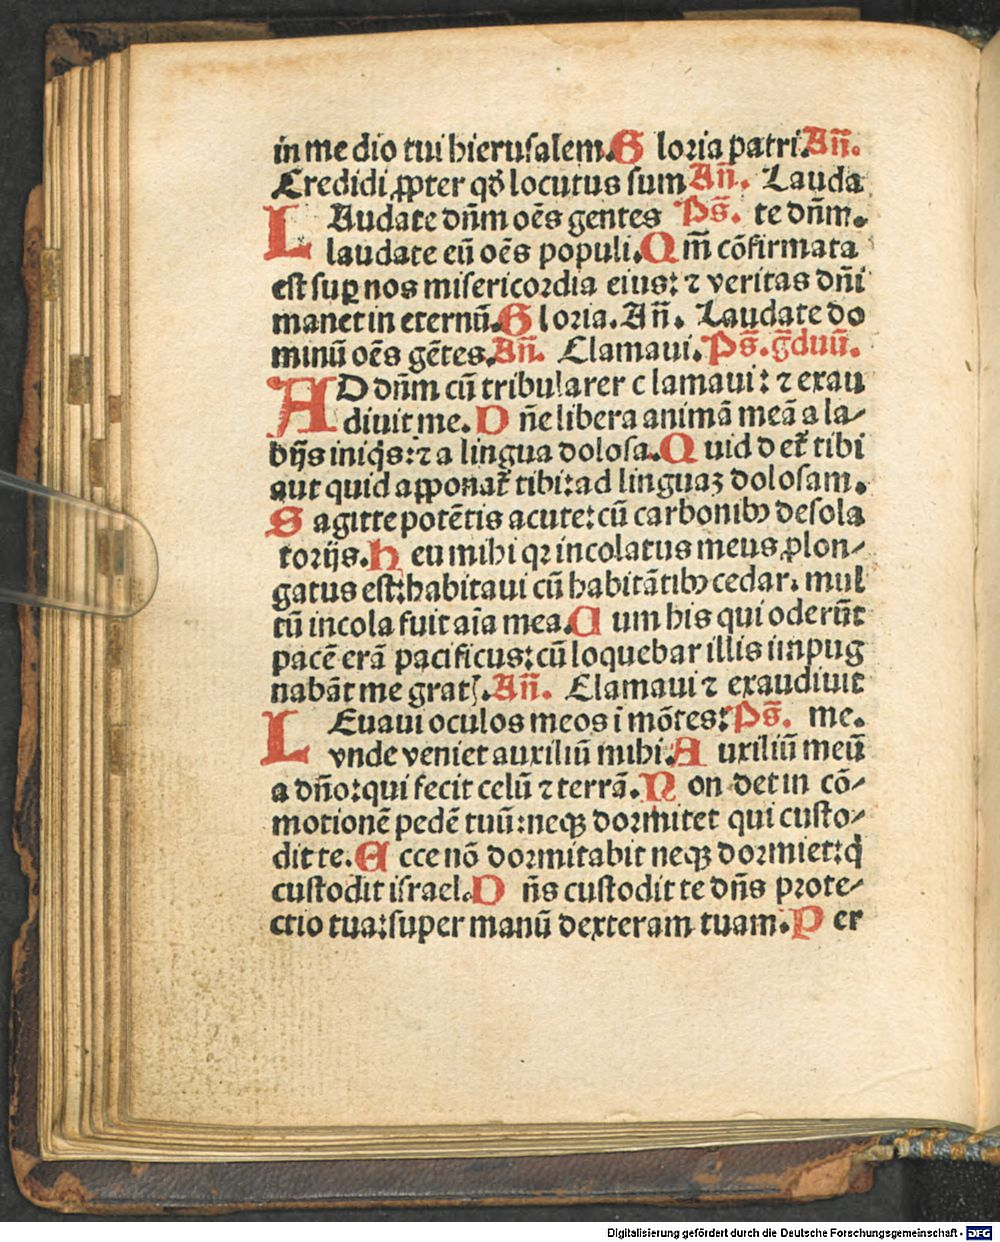 in me dio tui hierusalem. G loria patri. An̄.
Credidi ꝓpter qḋ locutus sum An̄. Lauda
LAudate dn̄m oēs gentes Ps̄. te dn̄m.
laudate eū oēs populi. Q m̄ cōfirmata
est suꝑ nos misericordia eius: ⁊ veritas dn̄i
manet in eternū. G loria. An̄. Laudate do
minū oēs gētes. An̄. Clamaui. Ps̄. g̅duū.
AD dn̄m cū tribularer c lamaui: ⁊ exau
diuit me. D n̄e libera animā meā a la⸗
bijs iniq̇s: ⁊ a lingua dolosa. Q uid d et᷑ tibi
aut quid aꝓponat᷑ tibi: ad linguaꝫ dolosam.
S agitte potētis acute: cū carbonibꝰ desola
torijs. H eu mihi qꝛ incolatus meus ꝓlon⸗
gatus est: habitaui cū habitātibꝰ cedar: mul
tū incola fuit aīa mea. C um his qui oderūt
pacē erā pacificus: cū loquebar illis impug
nabāt me grat︮. An̄. Clamaui ⁊ exaudiuit
LEuaui oculos meos ī mōtes: Ps̄. me.
vnde veniet auxiliū mihi. A uxiliū meū
a dn̄o: qui fecit celū ⁊ terrā. N on det in cō⸗
motionē pedē tuū: neqꝫ dormitet qui custo⸗
dit te. E cce nō dormitabit neqꝫ dormiet: q̇
custodit israel. D n̄s custodit te dn̄s prote⸗
ctio tua: super manū dexteram tuam. P er
Digitalisierung gefördert durch die Deutsche Forschungsgemeinschaft - DFG